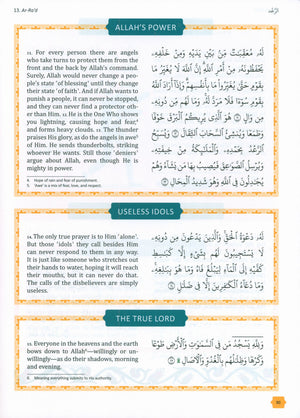 13. Ar-Ra'd
الرَّعْد
ALLAH'S POWER
11. For every person there are angels
who take turns to protect them from the
front and the back by Allah's command.
Surely, Allah would never change a peo-
ple's state 'of blessing' until they change
their state 'of faith'. And if Allah wants to
punish a people, it can never be stopped,
and they can never find a protector oth-
er than Him. 12. He is the One Who shows
you lightning, causing hope and fear,⁴
and forms heavy clouds. 13. The thunder
praises His glory, as do the angels in awe⁵
of Him. He sends thunderbolts, striking
whoever He wants. Still those 'deniers'
argue about Allah, even though He is
mighty in power.
4. Hope of rain and fear of punishment.
5. 'Awe' is a mix of fear, love, and respect.
لَهُۥ مُعَقِّبَـٰتٌ مِّنۢ بَيْنِ يَدَيْهِ وَمِنْ خَلْفِهِۦ
يَحْفَظُونَهُۥ مِنْ أَمْرِ ٱللَّهِ إِنَّ ٱللَّهَ لَا يُغَيِّرُ مَا
بِقَوْمٍ حَتَّىٰ يُغَيِّرُوا۟ مَا بِأَنفُسِهِمْ وَإِذَآ أَرَادَ ٱللَّهُ
بِقَوْمٍ سُوٓءًا فَلَا مَرَدَّ لَهُۥ وَمَا لَهُم مِّن دُونِهِۦ
مِن وَالٍ ۝ هُوَ ٱلَّذِى يُرِيكُمُ ٱلْبَرْقَ خَوْفًا
وَطَمَعًا وَيُنشِئُ ٱلسَّحَابَ ٱلثِّقَالَ ۝ وَيُسَبِّحُ
ٱلرَّعْدُ بِحَمْدِهِۦ وَٱلْمَلَـٰٓئِكَةُ مِنْ خِيفَتِهِۦ
وَيُرْسِلُ ٱلصَّوَٰعِقَ فَيُصِيبُ بِهَا مَن يَشَآءُ وَهُمْ
يُجَـٰدِلُونَ فِى ٱللَّهِ وَهُوَ شَدِيدُ ٱلْمِحَالِ ۝
USELESS IDOLS
14. The only true prayer is to Him 'alone'.
But those 'idols' they call besides Him
can never respond to them in any way.
It is just like someone who stretches out
their hands to water, hoping it will reach
their mouths, but it can never do that.
The calls of the disbelievers are simply
useless.
لَهُۥ دَعْوَةُ ٱلْحَقِّ وَٱلَّذِينَ يَدْعُونَ مِن دُونِهِۦ
لَا يَسْتَجِيبُونَ لَهُم بِشَىْءٍ إِلَّا كَبَـٰسِطِ
كَفَّيْهِ إِلَى ٱلْمَآءِ لِيَبْلُغَ فَاهُ وَمَا هُوَ بِبَـٰلِغِهِۦ
وَمَا دُعَآءُ ٱلْكَـٰفِرِينَ إِلَّا فِى ضَلَـٰلٍ ۝
THE TRUE LORD
15. Everyone in the heavens and the earth
bows down to Allah⁶—willingly or un-
willingly—as do their shadows, morning
and evening.
6. Meaning everything submits to His authority.
وَلِلَّهِ يَسْجُدُ مَن فِى ٱلسَّمَـٰوَٰتِ وَٱلْأَرْضِ طَوْعًا
وَكَرْهًا وَظِلَـٰلُهُم بِٱلْغُدُوِّ وَٱلْـَٔاصَالِ ۩ ۝